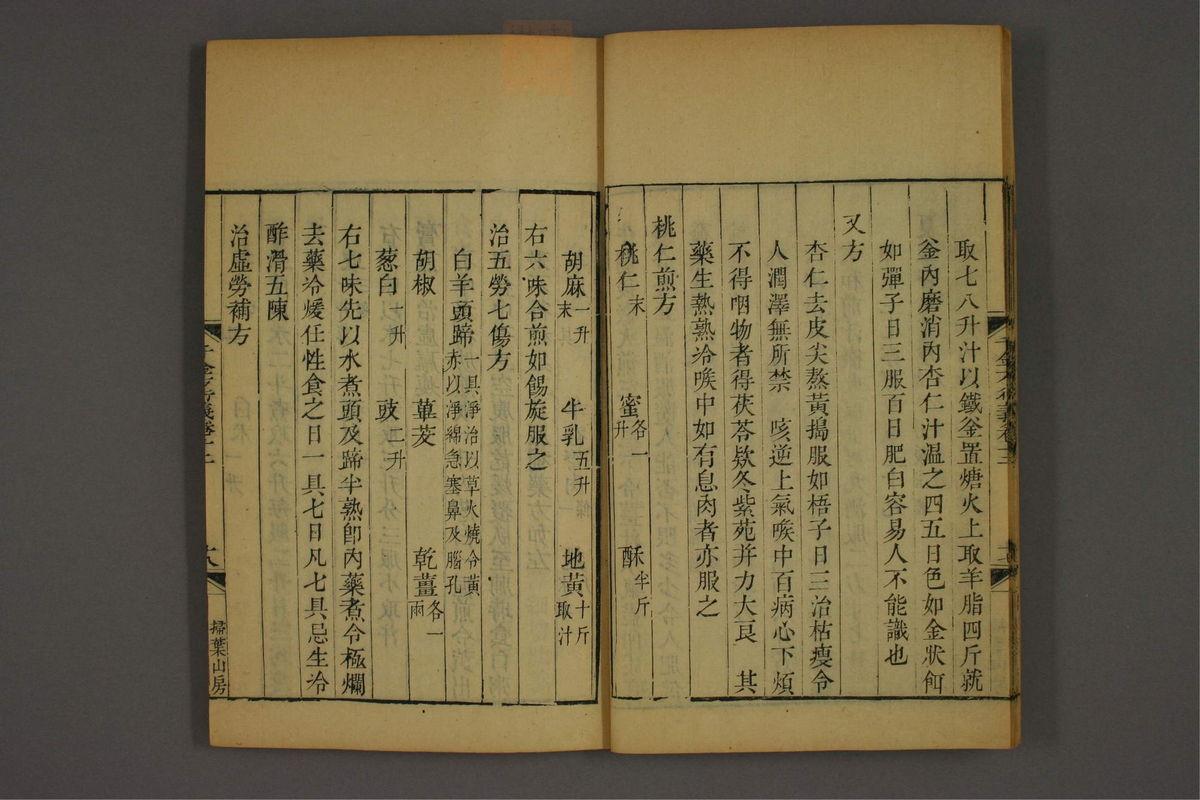 取七八升汁以鐵釜置煻火上取羊脂四斤就
釜內磨消內杏仁汁溫之四五日色如金狀餌
如彈子日三服百日肥白容易人不能識也
又方
杏仁去皮尖熬黃搗服如梧子日三治枯瘦令
人潤澤無所禁 咳逆上氣喉中百病心下煩
不得咽物者得茯苓欵冬紫菀并力大良 其
藥生熟熟冷喉中如有息肉者亦服之
桃仁煎方
桃仁末 蜜各一升 酥半斤
胡麻一升末 牛乳五升 地黃十斤取汁
右六味合煎如餳旋服之
治五勞七傷方
白羊頭蹄一具淨治以草火燒令黃赤以淨綿急塞鼻及腦孔
胡椒 蓽茇 乾薑各一兩
葱白一升 豉二升
右七味先以水煮頭及蹄半熟卽內藥煮令極爛
去藥冷煖任性食之日一具七日凡七具忌生冷
酢滑五陳
治虛勞補方
掃葉山房